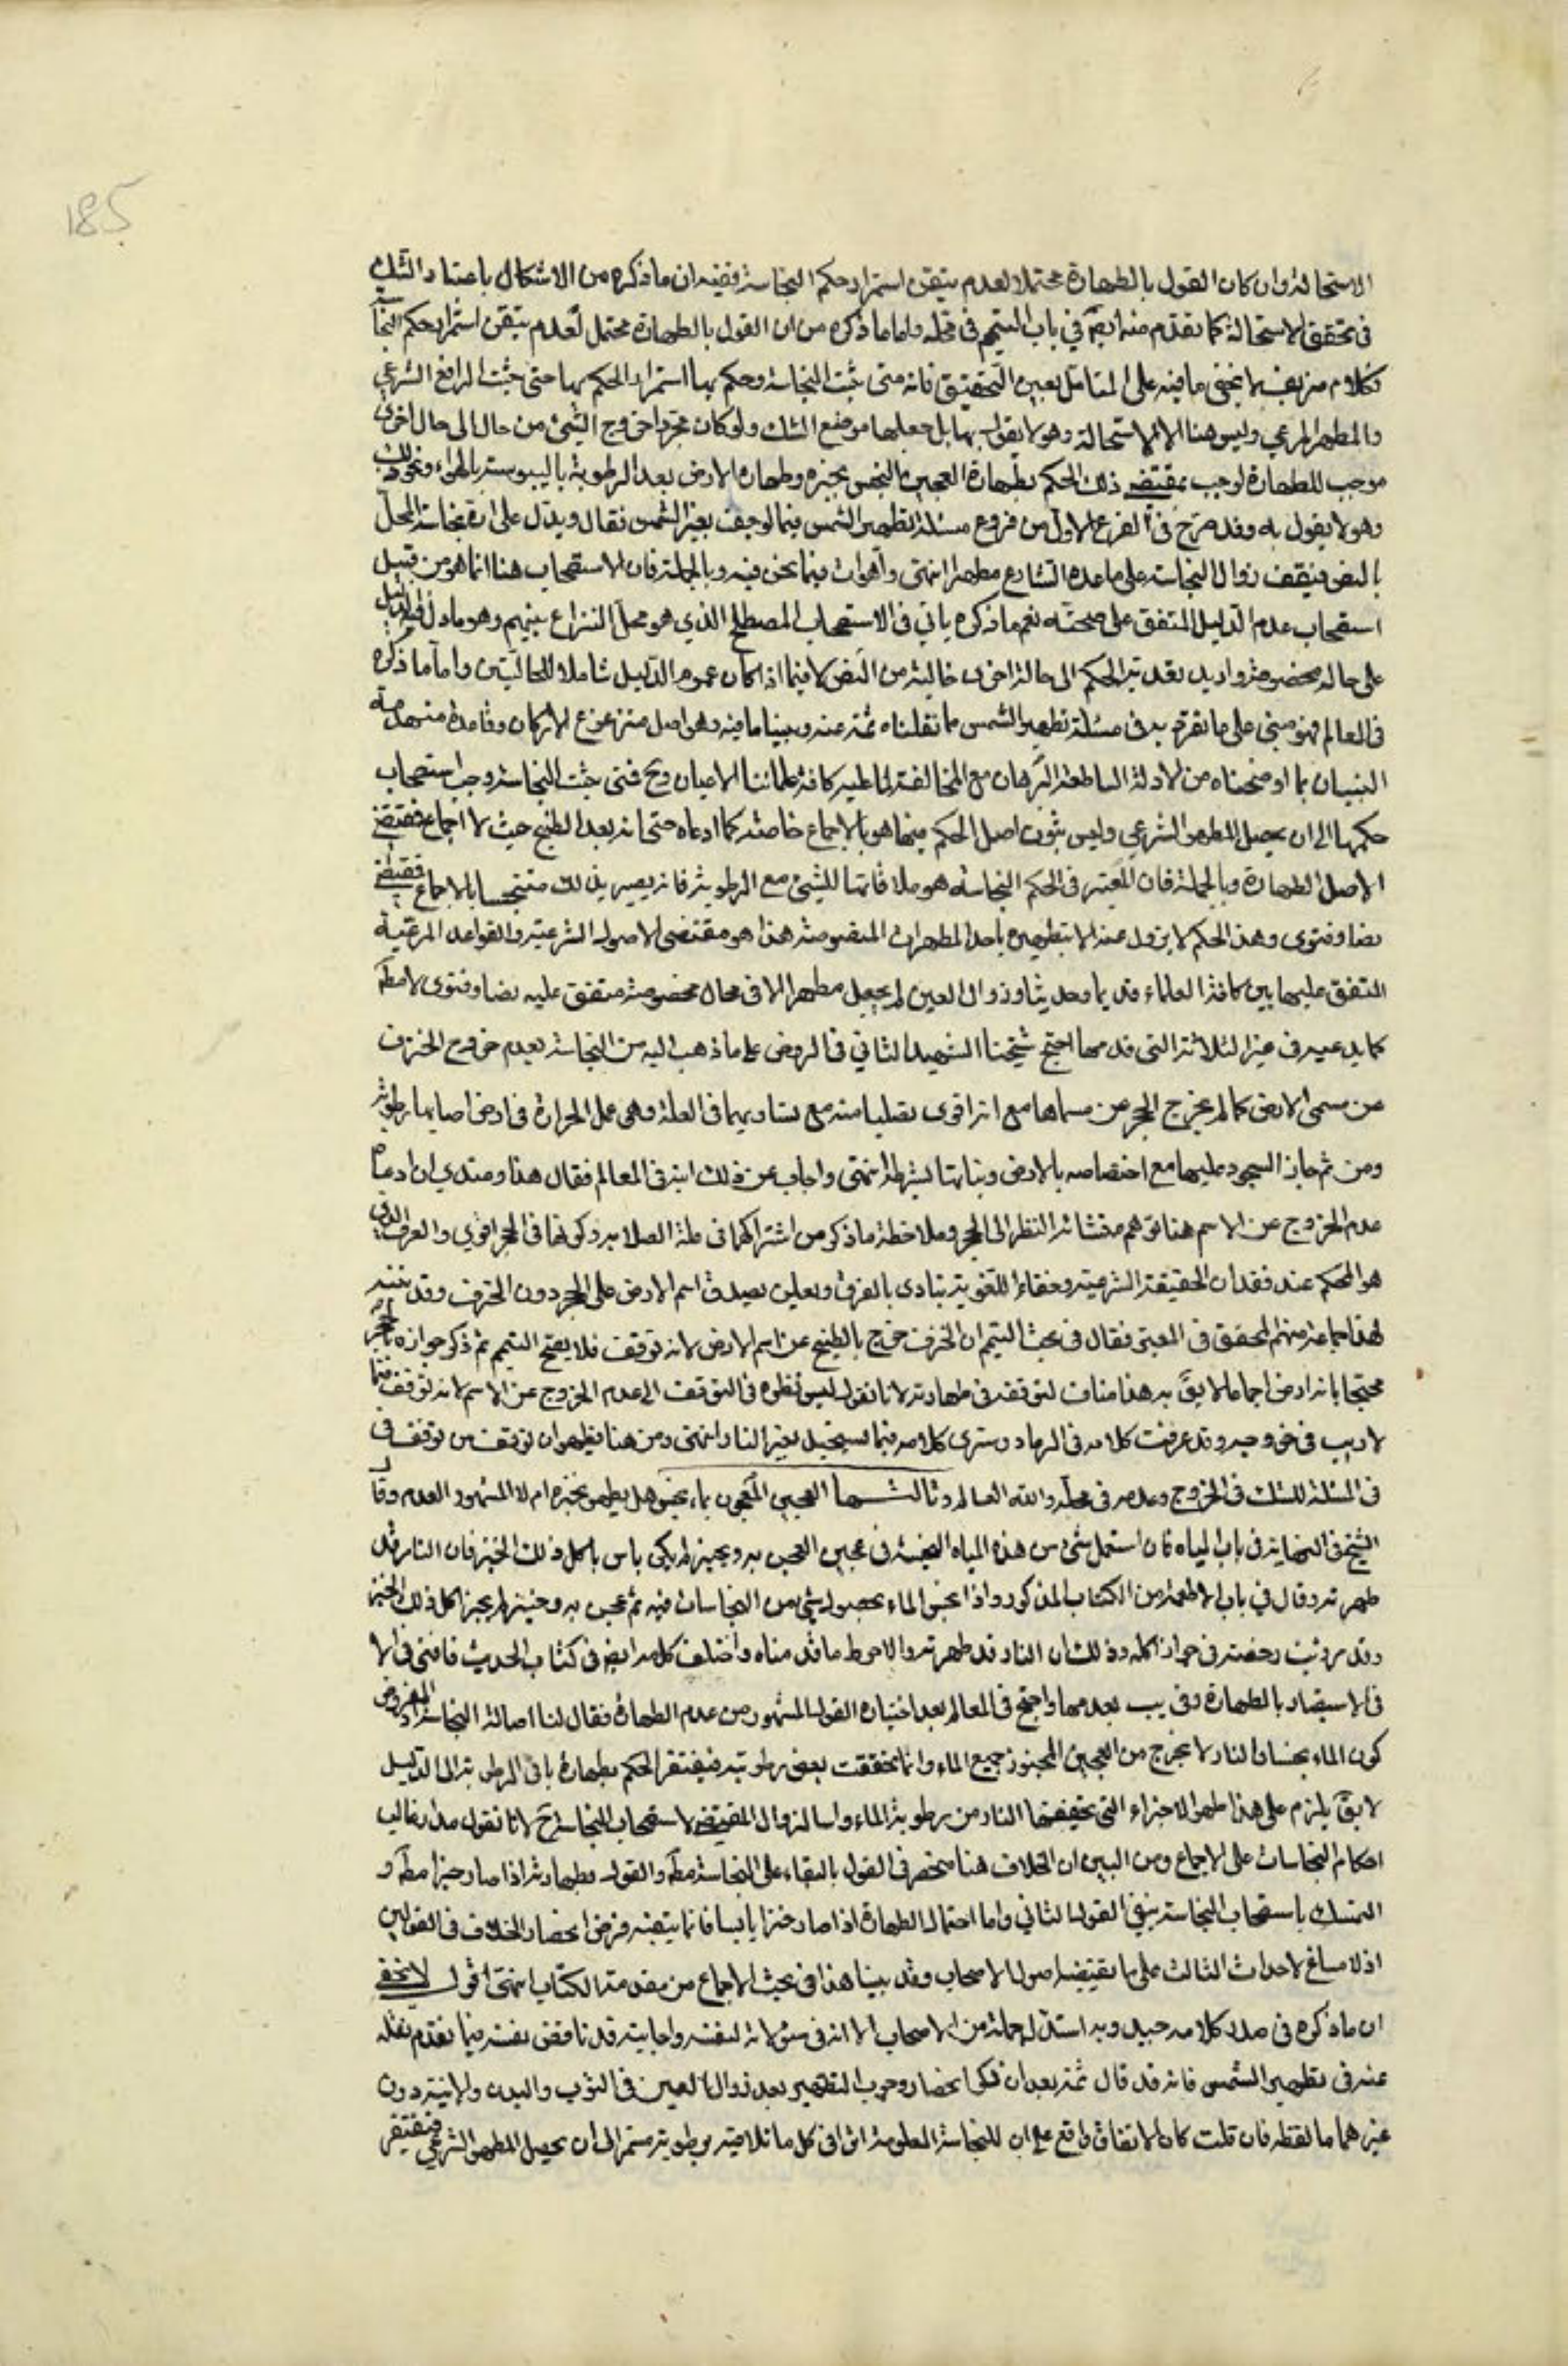 185
الاستحالة وان كان القول بالطهارة محتملا لعدم تيقن استمرار حكم النجاسة ففيه ان ما ذكره من الاشكال باعتبار الشك
في تحقق الاستحالة كما تقدم منه ايضا في باب التيمم في محله واما ما ذكره من ان القول بالطهارة محتمل لعدم تيقن استمرار حكم النجاسة
فكلام مزيف لا يخفى ما فيه على المتامل بعين التحقيق فانه متى ثبت النجاسة وحكم بها استمرار الحكم بها حتى يثبت الرافع الشرعي
والمطهر المرعي وليس هنا الا الاستحالة وهو لا يقول بها بل جعلها موضع الشك ولو كان مجرد خروج الشيء من حال الى حال اخرى
موجب للطهارة لوجب بمقتضى ذلك الحكم بطهارة العجين النجس بخبزه وطهارة الارض بعد الرطوبة باليبوسة بالهواء ونحو ذلك
وهو لا يقول به وقد صرح في الفرع الاول من فروع مسئلة تطهير الشمس فيما لو جف بغير الشمس فقال ويدل على نجاسة المحل
بالنص فيقف زوال النجاسة على ما عده الشارع مطهرا انتهى وهو ات فيما نحن فيه وبالجملة فان الاستصحاب هنا انما هو من قبيل
استصحاب عدم الدليل المتفق على صحته نعم ما ذكره ياتي في الاستصحاب المصطلح الذي هو محل النزاع بينهم وهو ما دل فيه الدليل
على حالة مخصوصة واريد تعدية الحكم الى حالة اخرى خالية من النص لا فيما اذا كان عموم الدليل شاملا للحالتين واما ما ذكره
في المعالم فهو مبني على ما تفرد به في مسئلة تطهير الشمس مما نقلناه ثمة عنه وبينا ما فيه وهو اصل متزعزع الاركان وقاعدة منهدمة
البنيان بما اوضحناه من الادلة الساطعة البرهان مع المخالفة لما عليه كافة علمائنا الاعيان وح فمتى ثبت النجاسة وجب استصحاب
حكمها الى ان يحصل المطهر الشرعي وليس ثبوت اصل الحكم فيها هو بالاجماع خاصة كما ادعاه حتى انه بعد الطبخ حيث لا اجماع فمقتضى
الاصل الطهارة وبالجملة فان المعتبر في الحكم النجاسة هو ملاقاتها للشيء مع الرطوبة فانه يصير بذلك متنجسا بالاجماع
نصا وفتوى وهذا الحكم لا يزول عنه الا بتطهيره باحد المطهرات المنصوصة هذا هو مقتضى الاصول الشرعية والقواعد المرعية
المتفق عليها بين كافة العلماء قديما وحديثا وزوال العين لم يجعل مطهرا الا في محال مخصوصة متفق عليه نصا وفتوى لا مط
كما يدعيه في غير الثلاثة التي قدمها احتج شيخنا الشهيد الثاني في الروض على ما ذهب اليه من النجاسة بعدم خروج الخزف
عن مسمى الارض كما لم يخرج الحجر عن مسماها مع انه اقوى تصلبا منه مع تساويهما في العلة وهي عمل الحرارة في ارض اصابها رطوبة
ومن ثم جاز السجود عليها مع اختصاصه بالارض ونباتها بشرطه انتهى واجاب عن ذلك ابنه في المعالم فقال هذا وعندي ان ادعاء
عدم الخروج عن الاسم هنا توهم منشائه النظر الى الحجر وملاحظة ما ذكر من اشتراكهما في علة الصلابة وكونها في الحجر اقوى والعرف الذي
هو المحكم عند فقدان الحقيقة الشرعية وخفاء اللغوية ينادي بالفرق ويعلن بصدق اسم الارض على الحجر دون الخزف وقد تنبه
لهذا جماعة منهم المحقق في المعتبر فقال في بحث التيمم ان الخزف خرج بالطبخ عن اسم الارض لانه توقف فلا يصح التيمم ثم ذكر جوازه بالحجر
محتجا بانه ارض اجماعا لا يق هذا مناف لتوقفه في طهارته لانا نقول ليس نظره في التوقف الى عدم الخروج عن الاسم لانه توقف فيما
لا ريب في خروجه وقد عرفت كلامه في الرماد وسترى كلامه فيما يستحيل بغير النار انتهى ومن هنا يظهر ان توقف من توقف
في المسئلة للشك في الخروج وعدمه في محله والله العالم وثالثها العجين المعجون بماء نجس هل يطهر بخبزه ام لا المشهور العدم وقال
الشيخ في النهاية في باب المياه فان استعمل شيء من هذه المياه النجسة في عجين العجن به ويخبز لم يكن باس باكل ذلك الخبز فان النار قد
طهرته وقال في باب الاطعمة من الكتاب المذكور واذا نجس الماء بحصول شيء من النجاسات فيه ثم عجن به وخبز لم يجز اكل ذلك الخبز
وقد رويت رخصة في جواز اكله وذلك ان النار قد طهرته والاحوط ما قدمناه واختلف كلامه ايضا في كتاب الحديث فافتى في
الاستبصار بالطهارة وفي يب بعدمها واحتج في المعالم بعد اختياره القول المشهور من عدم الطهارة فقال لنا اصالة النجاسة اذ المفروض
كون الماء نجسا والنار لا تخرج من العجين المخبوز جميع الماء وانما تجففت بعض رطوبته فيفتقر الحكم بطهارة باقي الرطوبة الى الدليل
لا يق يلزم على هذا طهر الاجزاء التي تجففها النار من رطوبة الماء واسا لزوال المقتضى لاستصحاب النجاسة ح لانا نقول مدار غالب
احكام النجاسات على الاجماع ومن البين ان الخلاف هنا منحصر في القول بالبقاء على النجاسة مط والقول بطهارته اذا صار خبزا مط و
التمسك باستصحاب النجاسة ينفي القول الثاني واما احتمال الطهارة اذا صار خبزا يابسا فانما ينفيه فرض انحصار الخلاف في القولين
اذ لا مساغ لاحداث الثالث على ما يقتضيه اصول الاصحاب وقد بينا هذا في بحث الاجماع من مقدمة الكتاب انتهى اقول لا يخفى
ان ما ذكره في صدر كلامه جيد وبه استدل جملة من الاصحاب الا انه في سؤلاته لنفسه واجابته قد ناقض نفسه فيما تقدم نقله
عنه في تطهير الشمس فانه قد قال ثمة بعد ان ذكر انحصار وجوب التطهير بعد زوال العين في الثوب والبدن والانية دون
غيرهما ما لفظه فان قلت كان الاتفاق واقع على ان للنجاسة المعلومة اثرا في كل ما تلاقيه برطوبة مستمر الى ان يحصل المطهر الشرعي فيفتقر